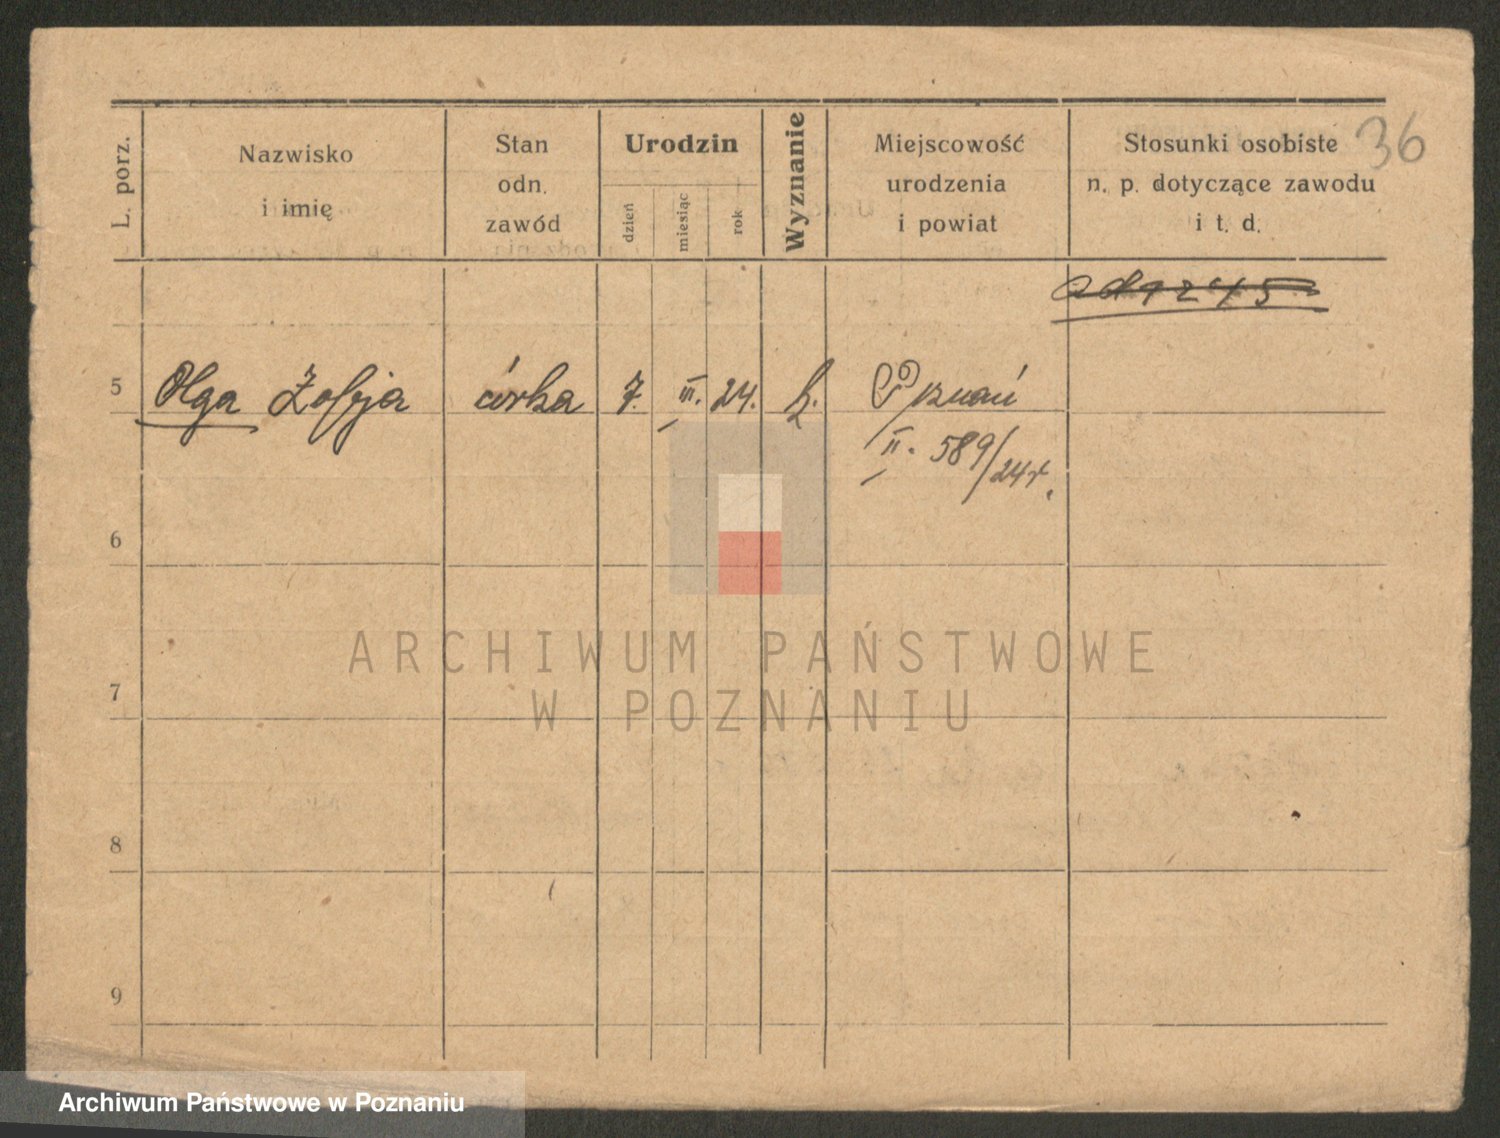 36
L. porz.
Nazwisko
i imię
Stan
odn.
zawód
Urodzin
dzień
miesiąc
rok
Wyznanie
Miejscowość
urodzenia
i powiat
Stosunki osobiste
n. p. dotyczące zawodu
i t. d.
5 Olga Zofja córka 7. III. 24. k. Poznań
II. 589/24r.
6
7
8
9
ARCHIWUM PAŃSTWOWE
W POZNANIU
Archiwum Państwowe w Poznaniu